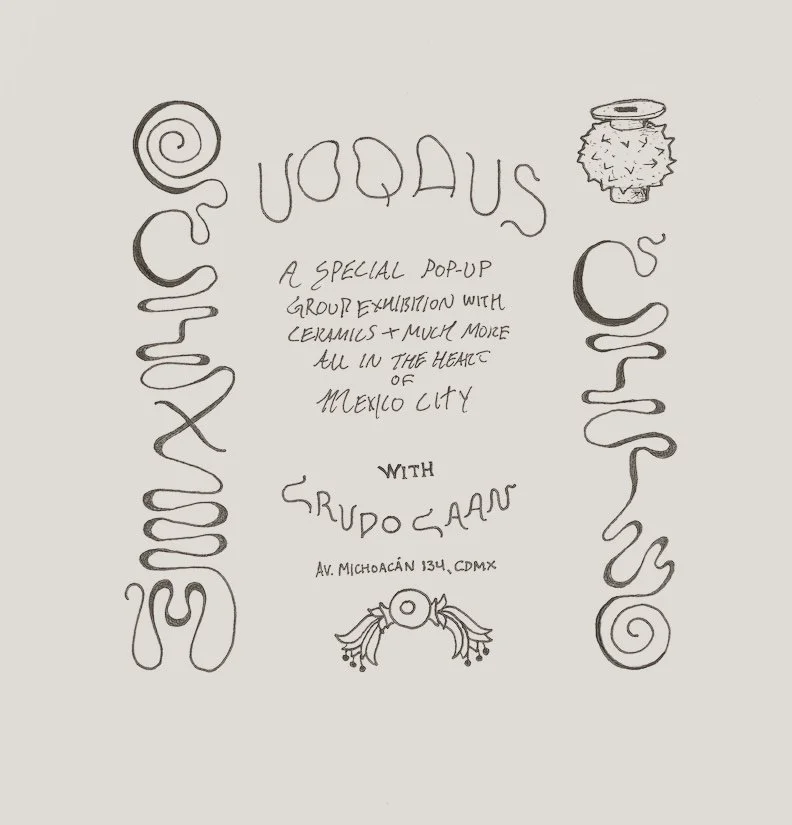 UOQAUS
A SPECIAL POP-UP
GROUP EXHIBITION WITH
CERAMICS + MUCH MORE
ALL IN THE HEART
OF
MEXICO CITY
WITH
CRUDO CAAN
AV. MICHOACÁN 134, CDMX